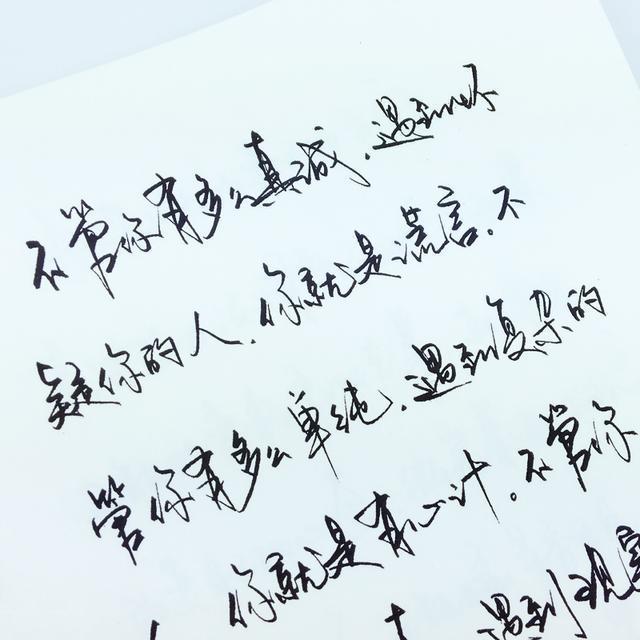 不管你有多么真诚，遇到怀
疑你的人，你就是谎言。不
管你有多么单纯，遇到复杂的
你就是有心计。不管你
遇到现